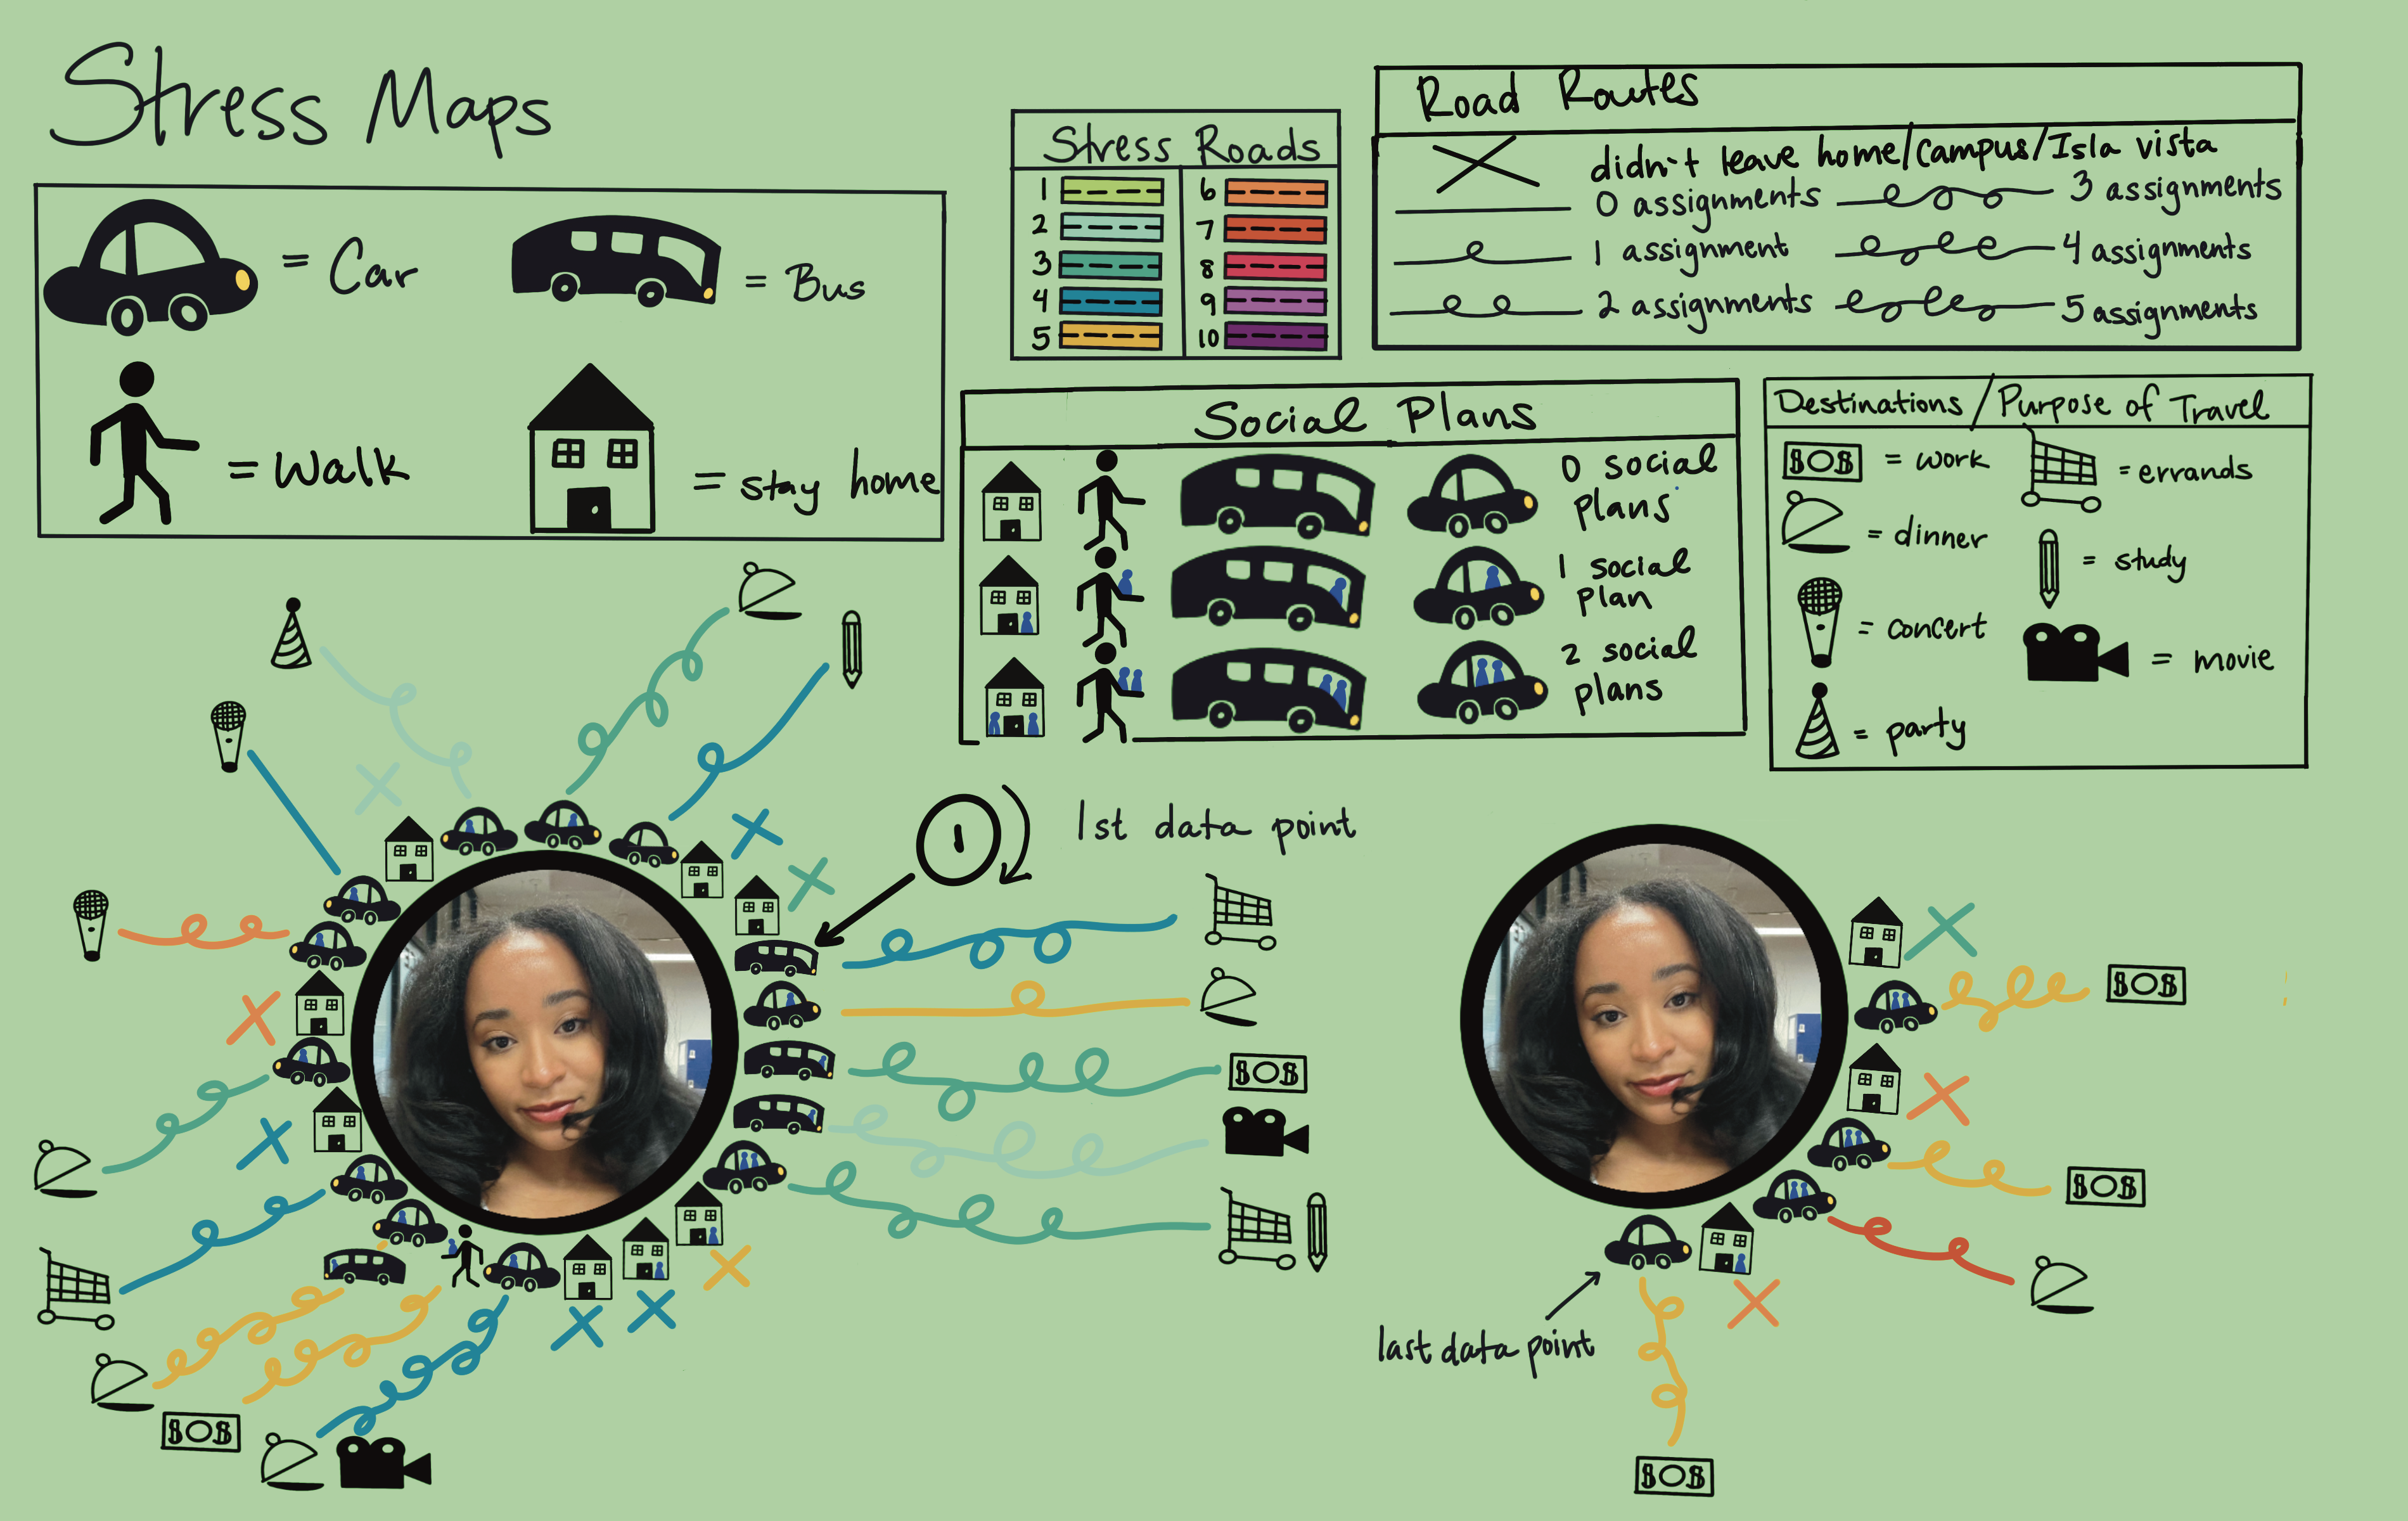 Stress Maps
= Car
= Bus
= Walk
= stay home
Stress Roads
1
2
3
4
5
6
7
8
9
10
Road Routes
didn't leave home/campus/Isla vista
0 assignments
1 assignment
2 assignments
3 assignments
4 assignments
5 assignments
Social Plans
0 social
plans
1 social
plan
2 social
plans
Destinations / Purpose of Travel
$O$ = work
= dinner
= concert
= party
= errands
= study
= movie
1
1st data point
$O$
$O$
$O$
$O$
last data point
$O$